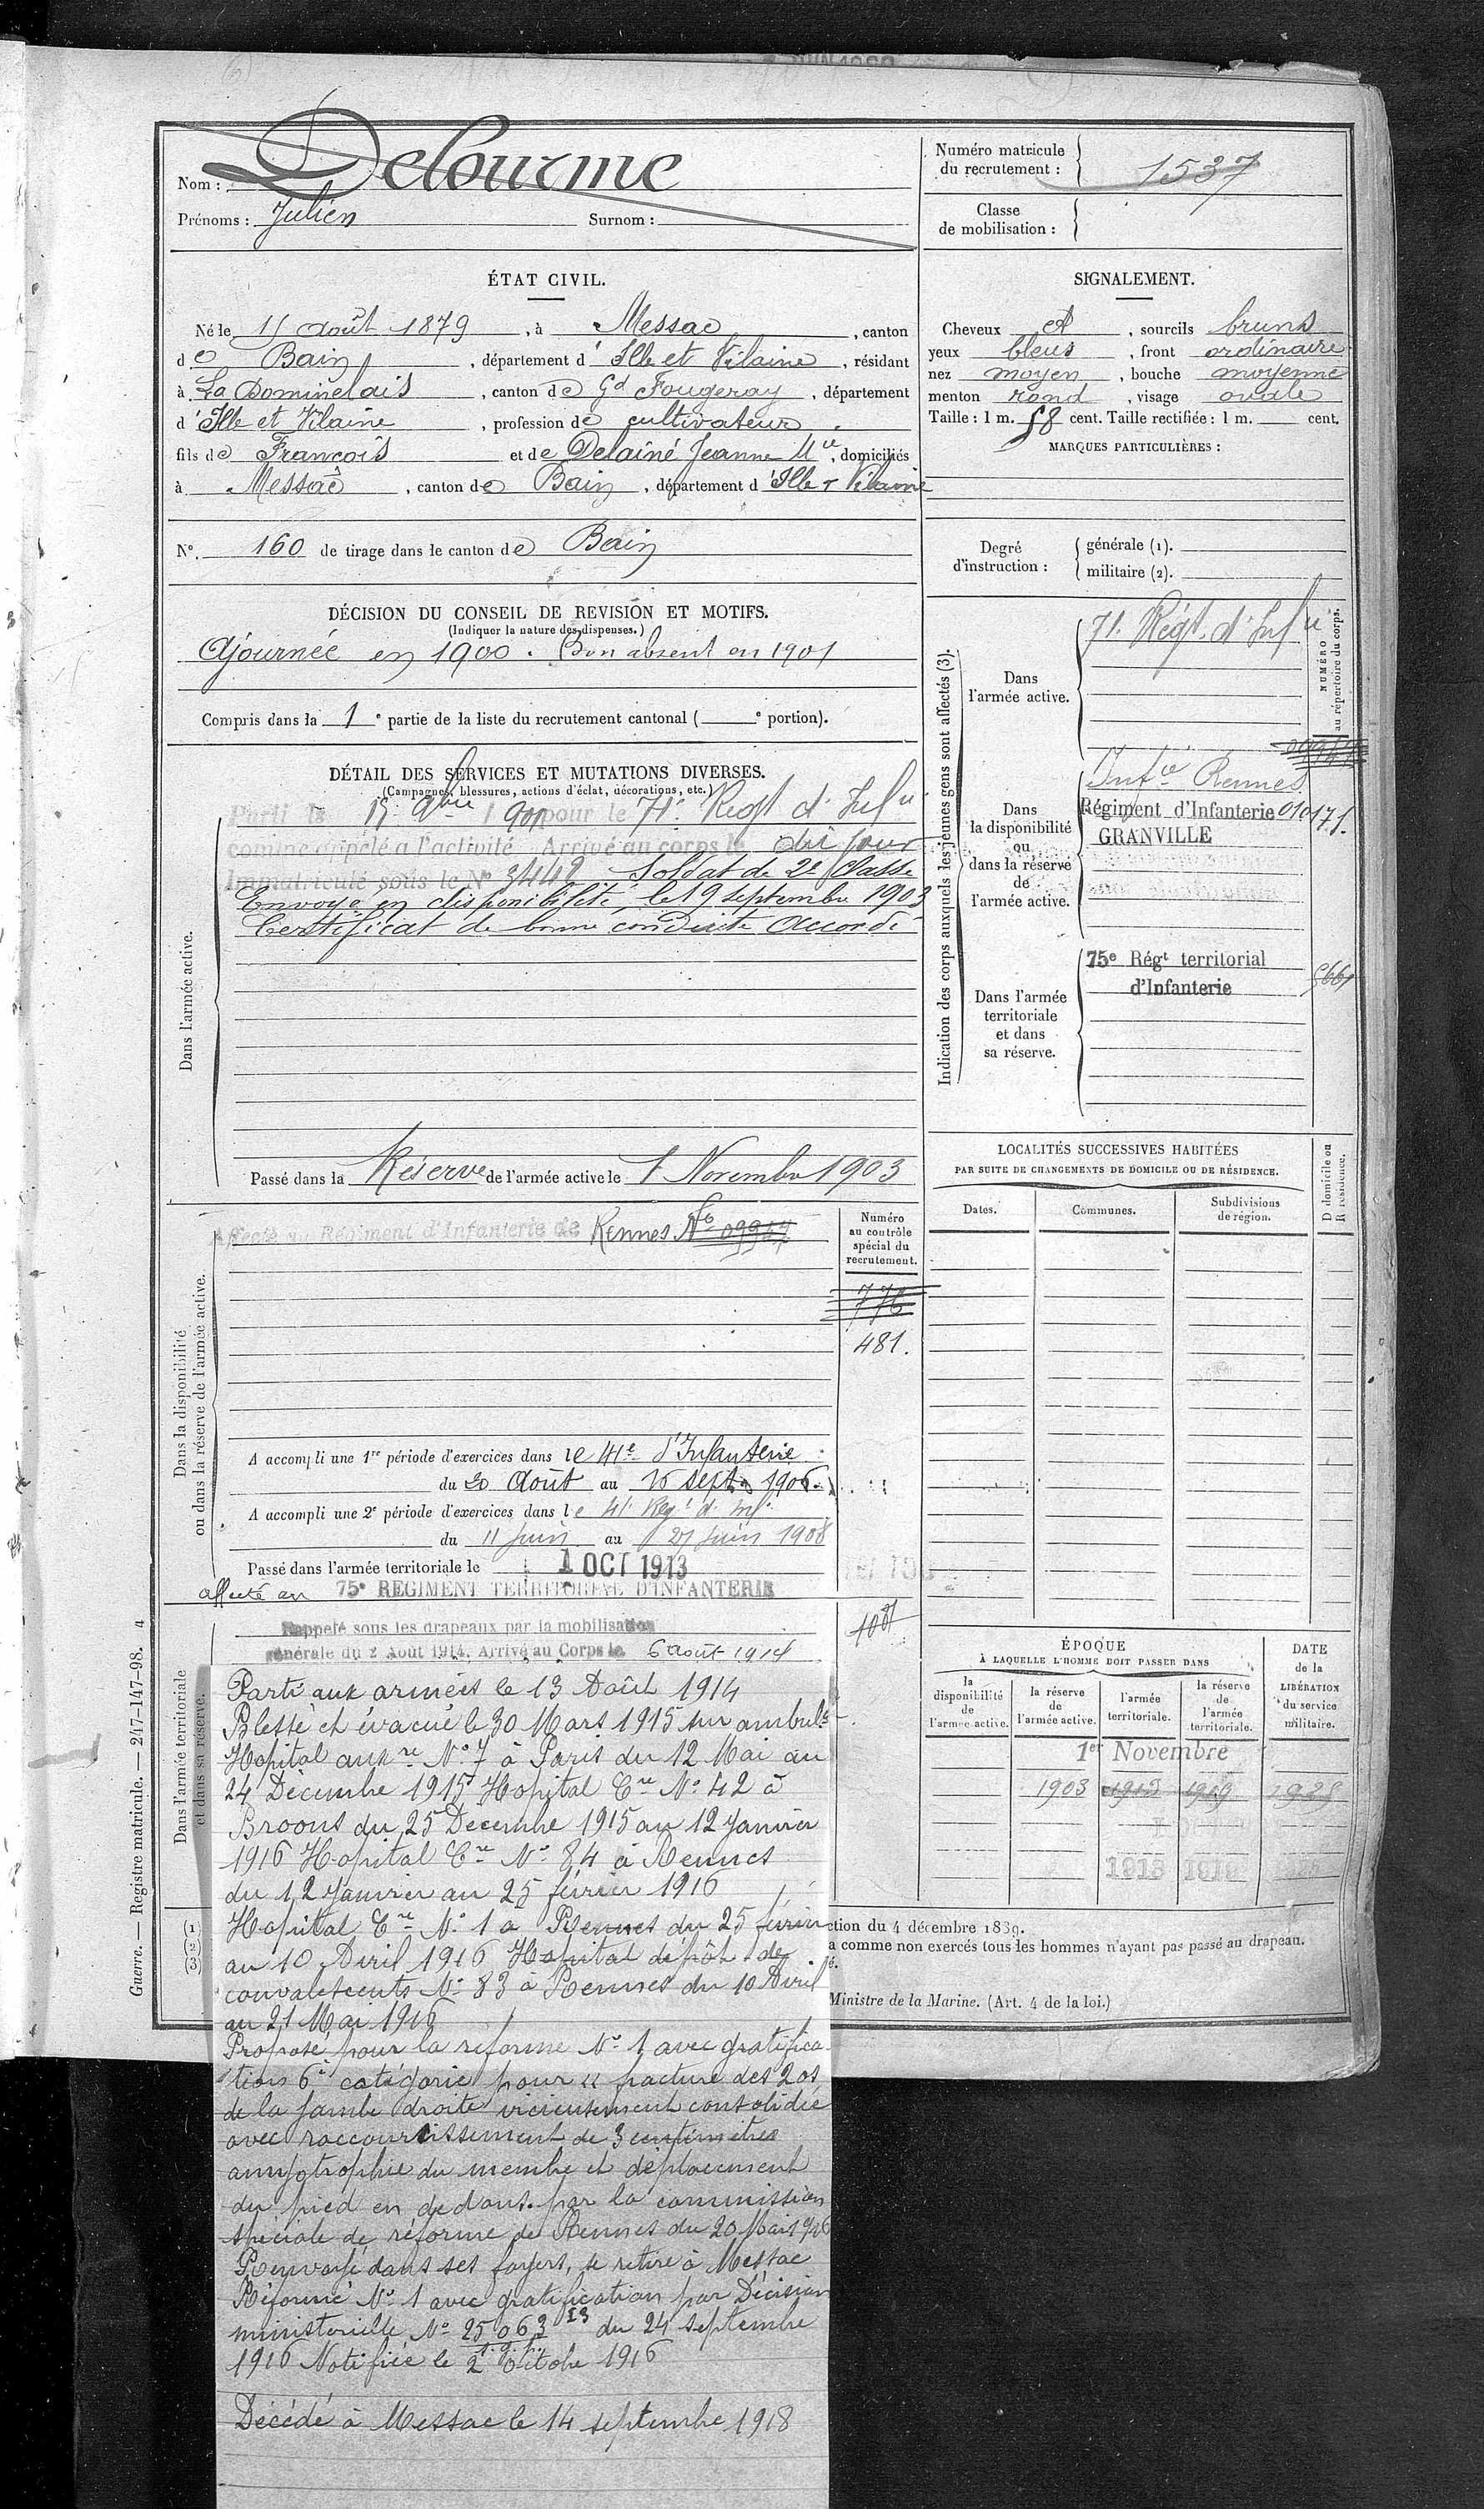 Nom : Delourme
Prénoms : Julien Surnom :
Numéro matricule
du recrutement : 1537
Classe
de mobilisation :
ÉTAT CIVIL.
Né le 11 août 1879, à Messac, canton
de Bain, département d'Ille et Vilaine, résidant
à La Dominelais, canton de Gd Fougeray, département
d'Ille et Vilaine, profession de cultivateur
fils de François et de Delainé Jeanne Mie, domiciliés
à Messac, canton de Bain, département d'Ille & Vilaine
N°. 160 de tirage dans le canton de Bain
SIGNALEMENT.
Cheveux et, sourcils bruns
yeux bleus, front ordinaire
nez moyen, bouche moyenne
menton rond, visage ovale
Taille : 1 m. 58 cent. Taille rectifiée : 1 m. cent.
MARQUES PARTICULIÈRES :
Degré
d'instruction :
générale (1).
militaire (2).
DÉCISION DU CONSEIL DE REVISION ET MOTIFS.
(Indiquer la nature des dispenses.)
Ajournée en 1900. Bon absent en 1901
Compris dans la 1e partie de la liste du recrutement cantonal ( e portion).
DÉTAIL DES SERVICES ET MUTATIONS DIVERSES.
(Campagnes, blessures, actions d'éclat, décorations, etc.)
Dans l'armée active.
Parti le 15 9bre 1901 pour le 71e Regt d'Infie
comme appelé a l'activité Arrivé au corps le dit jour
Immatriculé sous le N° 3442 Soldat de 2e Classe
Envoyé en disponibilité, le 19 septembre 1903
Certificat de bonne conduite accordé
Passé dans la Réserve de l'armée active le 1 Novembre 1903
Indication des corps auxquels les jeunes gens sont affectés (3).
NUMÉRO
au répertoire du corps.
Dans
l'armée active.
71. Régt d'Infie
Dans
la disponibilité
ou
dans la réserve
de
l'armée active.
Infie Rennes
Régiment d'Infanterie 010171.
GRANVILLE
Dans l'armée
territoriale
et dans
sa réserve.
75e Régt territorial
d'Infanterie
5661
Dans la disponibilité
ou dans la réserve de l'armée active.
Affecté au Régiment d'Infanterie de Rennes No 09947
Numéro
au contrôle
spécial du
recrutement.
776
481.
A accompli une 1re période d'exercices dans le 41e d'Infanterie
du 20 Août au 16 septe 1906.
A accompli une 2e période d'exercices dans le 41e Regt d'Infie
du 11 juin au 27 juin 1908
Passé dans l'armée territoriale le 1 OCT 1913
affecté au 75e REGIMENT TERRITORIAL D'INFANTERIE
LOCALITÉS SUCCESSIVES HABITÉES
PAR SUITE DE CHANGEMENTS DE DOMICILE OU DE RÉSIDENCE.
Dates. Communes. Subdivisions
de région.
D domicile ou
R résidence.
Dans l'armée territoriale
et dans sa réserve.
Rappelé sous les drapeaux par la mobilisation
générale du 2 Août 1914. Arrivé au Corps le 6 août 1914
Parti aux armées le 13 Août 1914
Blessé et évacué le 30 Mars 1915 sur ambulce
Hopital auxre No 7 à Paris du 12 Mai au
24 Décembre 1915 Hopital Cre No 42 à
Broons du 25 Decembre 1915 au 12 Janvier
1916 Hopital Cre No 84 à Rennes
du 12 Janvier au 25 février 1916
Hopital Cre No 1 a Rennes du 25 février
au 10 Avril 1916 Hopital dépôt de
convalescents No 83 à Rennes du 10 Avril
au 21 Mai 1916
Proposé pour la reforme No 1 avec gratifica
tion 6e catégorie pour " fracture des 2 os
de la jambe droite vicieusement consolidée
avec raccourcissement de 3 centimetres
amyotrophie du membre et déplacement
du pied en dedans. par la commission
spéciale de réforme de Rennes du 20 Mai 1916
Renvoyé dans ses foyers, se retire à Messac
Réformé No 1 avec gratification par Décision
ministerielle No 25063 I3 du 24 septembre
1916 Notifiée le 2 octobre 1916
Décédé à Messac le 14 septembre 1918
ÉPOQUE
À LAQUELLE L'HOMME DOIT PASSER DANS
la
disponibilité
de
l'armée active.
la réserve
de
l'armée active.
l'armée
territoriale.
la réserve
de
l'armée
territoriale.
DATE
de la
LIBÉRATION
du service
militaire.
1er Novembre
1903 1913 1919 1925
1913 1919
(1)
(2)
(3)
ction du 4 décembre 1889.
a comme non exercés tous les hommes n'ayant pas passé au drapeau.
é.
Ministre de la Marine. (Art. 4 de la loi.)
Guerre. — Registre matricule. — 247-147-98. 4